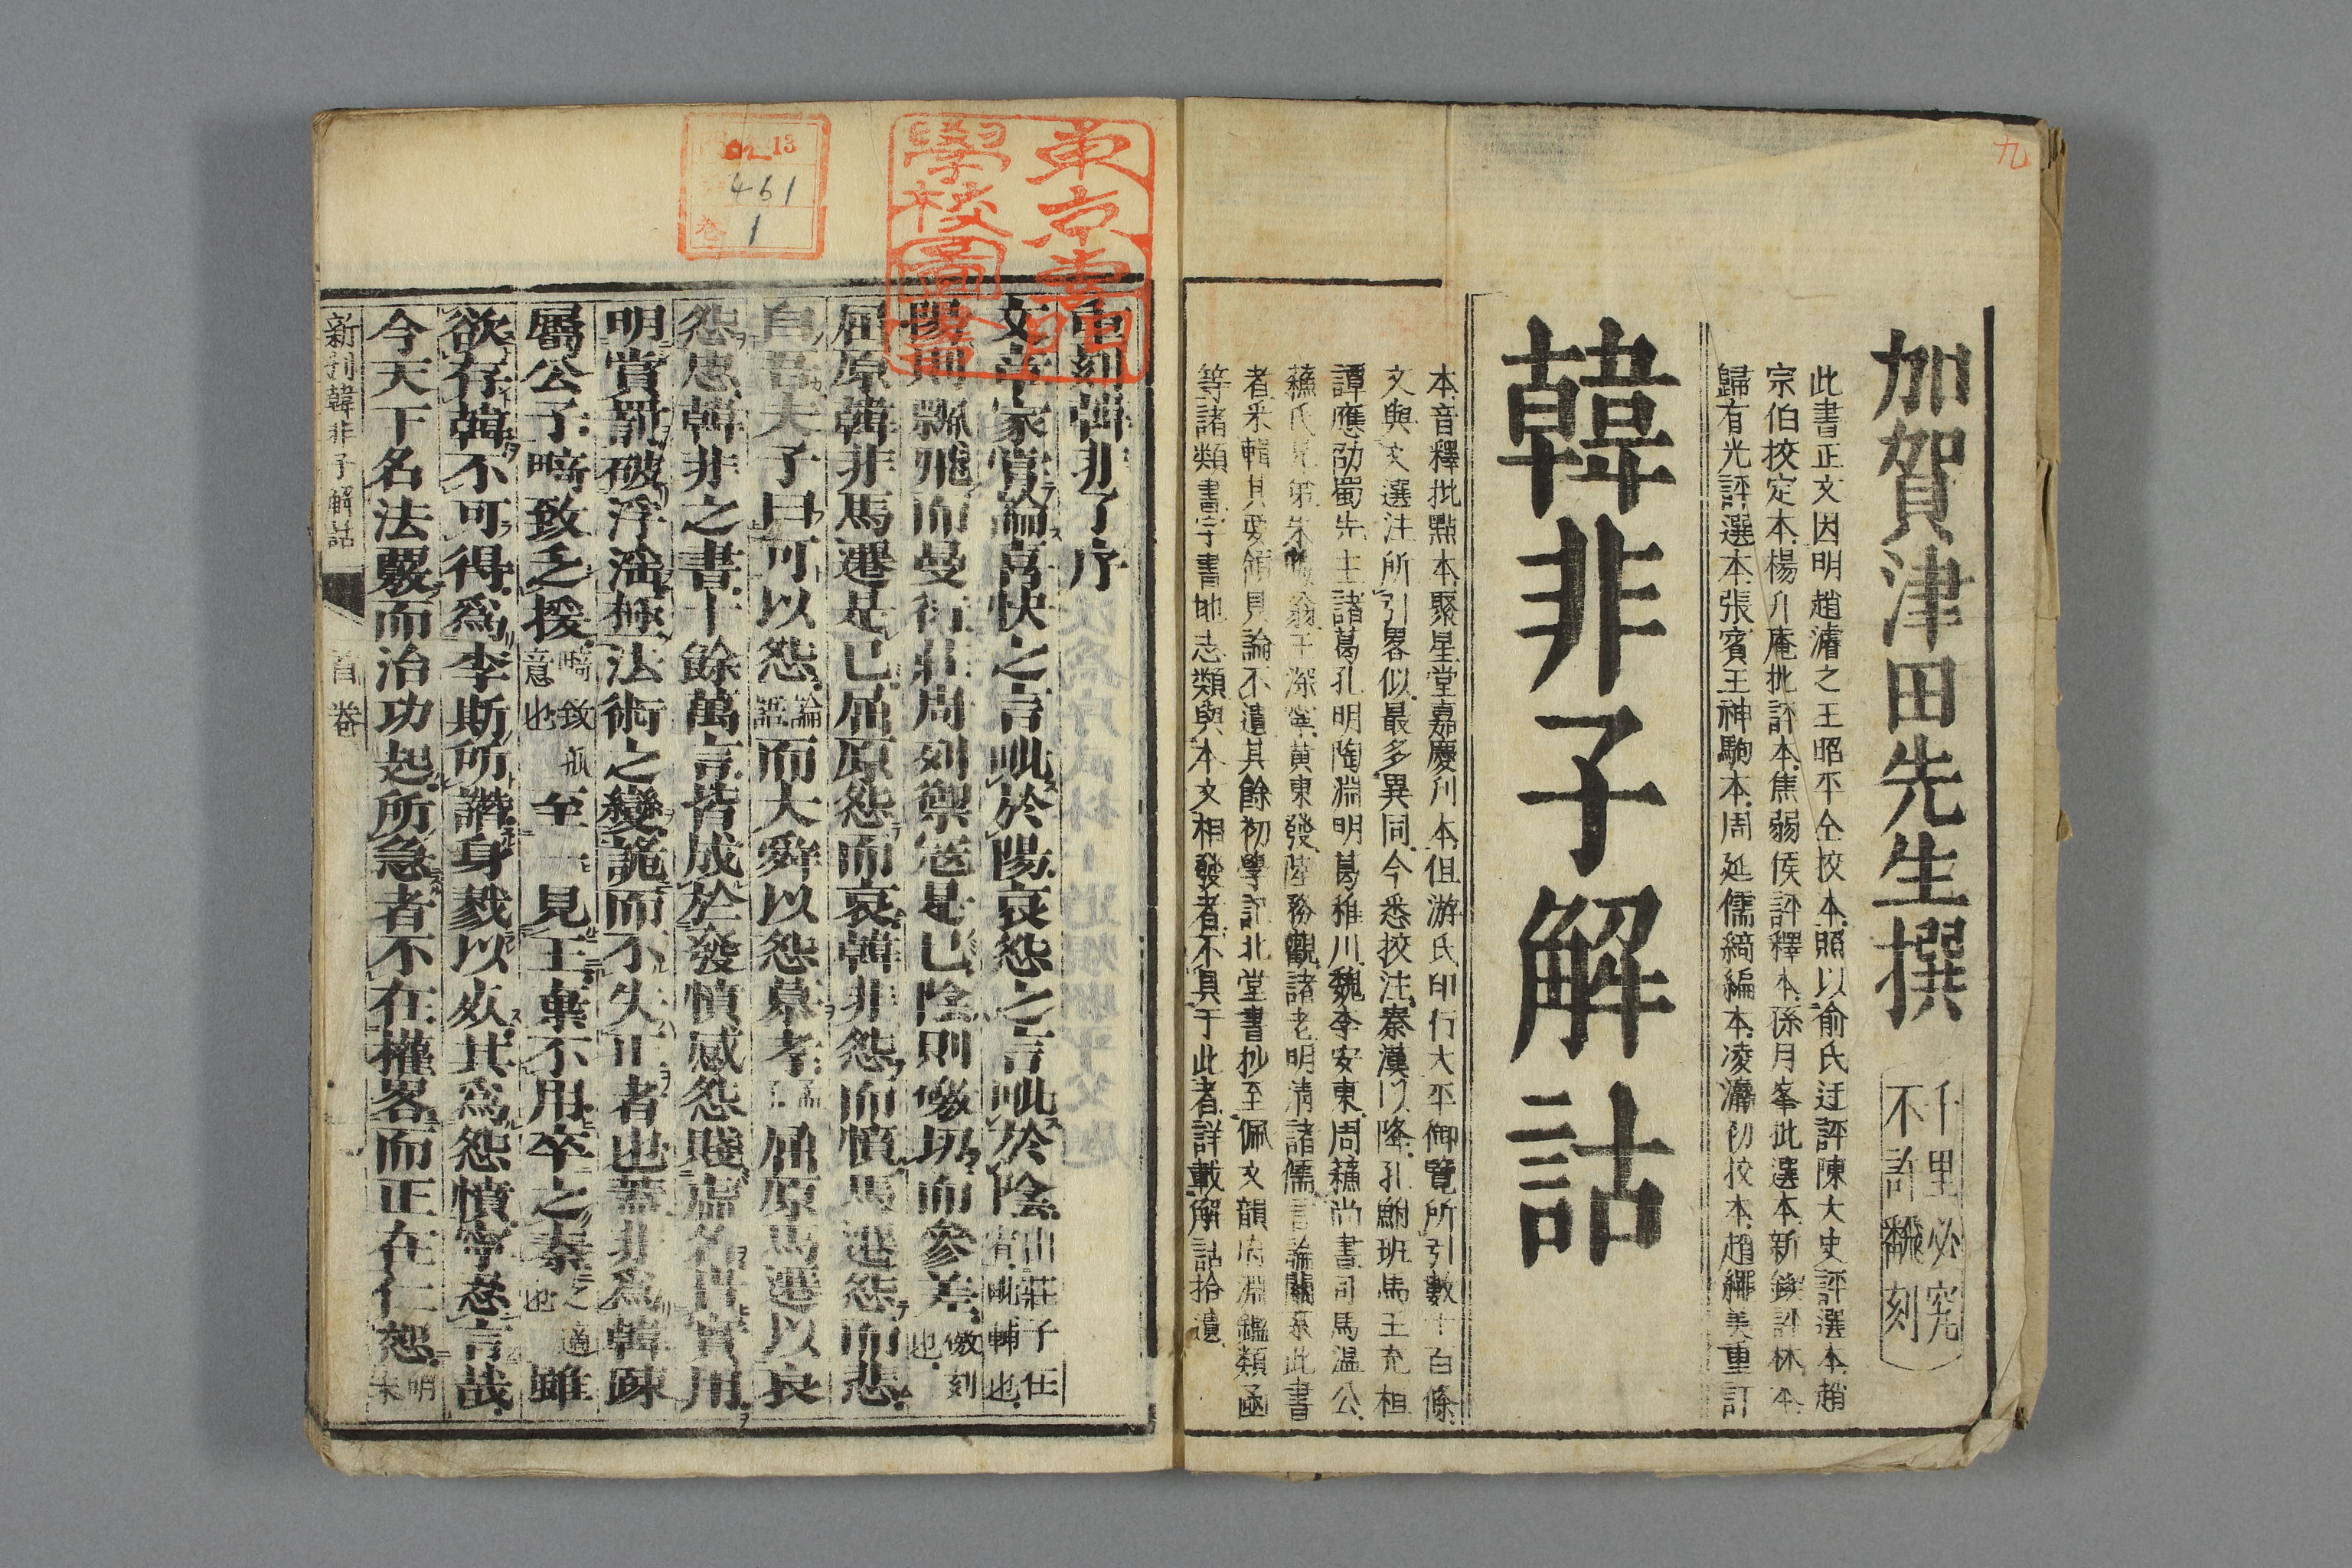 九
加賀津田先生撰
千里必究
不許飜刻
此書正文因明趙濬之王昭平仝挍本照以俞氏迂評陳大史評選本趙
宗伯挍定本楊升庵批評本焦弱侯評釋本孫月峯批選本新鐫評林本
歸有光評選本張賓王神駒本周延儒綺編本凌瀛初挍本趙繩美重訂
韓非子解詁
本音釋批點本聚星堂嘉慶刋本但游氏印行大平御覽所引數十百條
文與文選注所引畧似最多異同今悉挍注秦漢以降孔鮒班馬王充桓
譚應劭蜀先主諸葛孔明陶淵明葛稚川魏李安東周蘓尚書司馬温公
蘓氏兄弟朱晦翁王深寧黄東發陸務觀諸老明清諸儒言論關系此書
者釆輯其要領具論不遺其餘初學記北堂書抄至佩文韻府淵鑑類函
等諸類書字書地志類與本文相發者不具于此者詳載解詁拾遺
東京專門
學校圖書
13
461
卷 1
重刻韓非子序
文章家嘗論喜快之言眦於陽哀怨之言眦於陰
陽則飄飛而曼衍莊周列禦寇是已陰則傪抝而參差
屈原韓非馬遷是已屈原怨而哀韓非怨而憤馬遷怨而悲
自吾夫子曰可以怨論語而大舜以怨慕孝屈原馬遷以哀
怨忠韓非之書十餘萬言皆成於發憤感怨賤虛名貴實用
明賞罰破浮淫極法術之變詭而不失正者也蓋非爲韓疎
屬公子畸致乏援至一見王棄不用卒之秦之適也雖
欲存韓不可得爲李斯所譖身戮以死其爲怨憤寧忍言哉
今天下名法覈而治功起所急者不在權畧而正在仁恕
新刻韓非子解詁 首卷